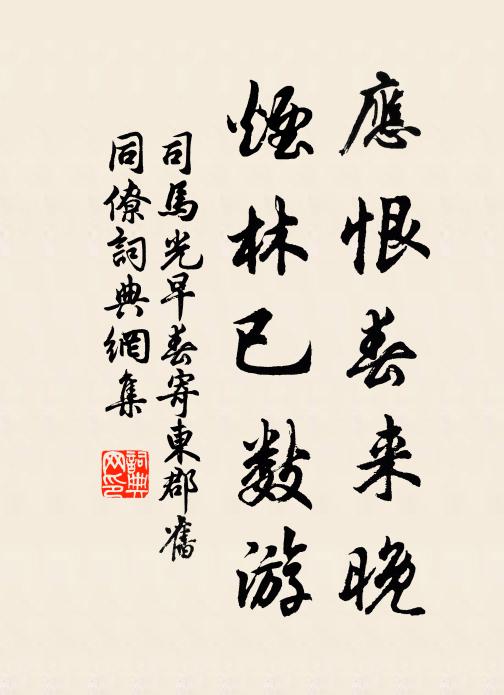 應恨春来晚
煙林已数游
司馬光早春寄東郡舊
同僚詞典網集
詞典
网印